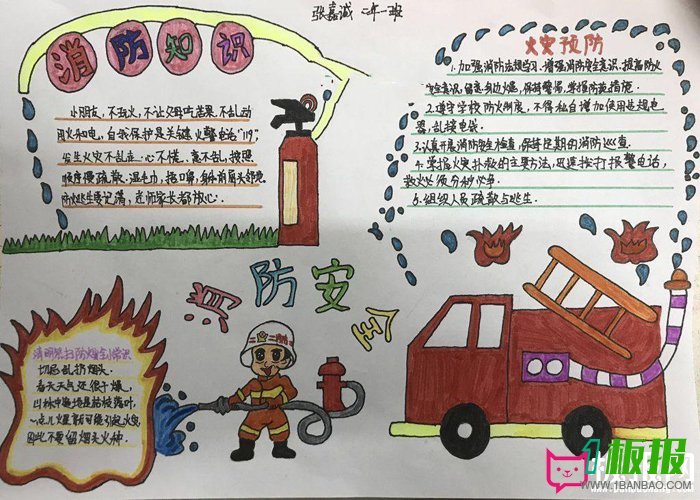 张嘉诚 二年一班
消防知识
小朋友，不玩火，不让父母吃苦果，不乱动
用火和电，自我保护是关键 火警电话"119"，
发生火灾不乱走，心不慌，意不乱，按照
顺序慢疏散，湿毛巾，捂口鼻，
防火逃生要记满，老师家长都放心。
火灾预防
1.加强消防法规学习，增强消防安全意识，提高防火
安全意识，留意身边火煋，保持警惕，掌握防火措施.
2.遵守学校防火制度，不得私自增加使用违规电
器，乱接电线.
3.认真开展消防安全检查，保持定期的消防巡查.
4.掌握火灾扑救的主要方法，迅速拨打报警电话，
救火必须分秒必争.
5.组织人员疏散与逃生.
消防安全
清明祭扫防火安全小常识
切忌乱扔烟头.
春天天气还很干燥，
山林中遍地是枯枝落叶，
一点儿火星有可能引起火灾
因此不要留烟头火种.
1板报
WWW.1BANBAO.COM